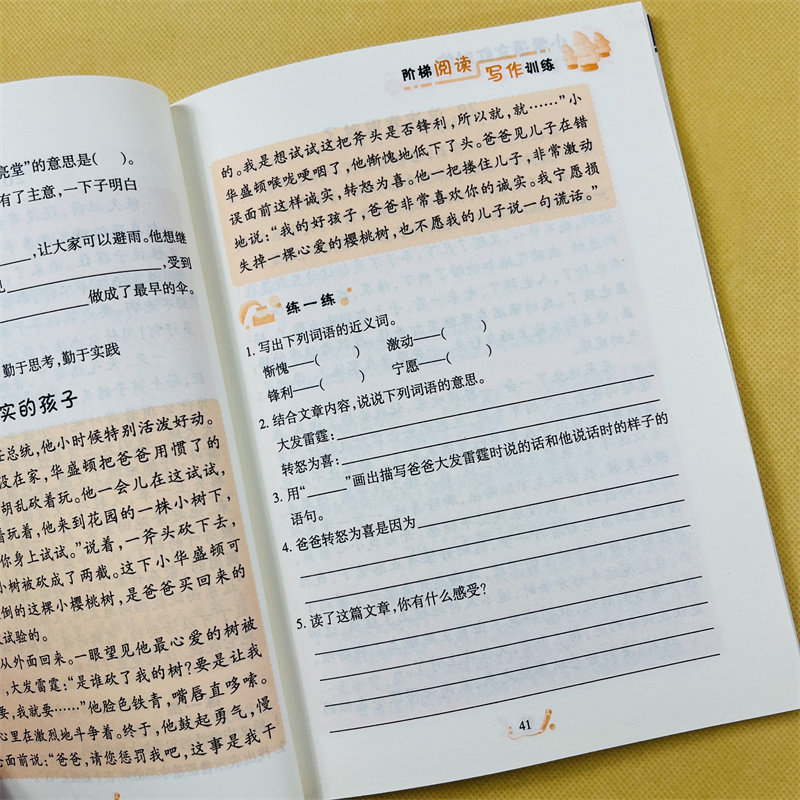 亮堂”的意思是( )。
有了主意，一下子明白
，让大家可以避雨。他想继
，受到
做成了最早的伞。
勤于思考，勤于实践
实的孩子
任总统，他小时候特别活泼好动。
没在家，华盛顿把爸爸用惯了的
胡乱砍着玩。他一会儿在这试试，
着玩着，他来到花园的一株小树下，
你身上试试。”说着，一斧头砍下去，
小树被砍成了两截。这下小华盛顿可
倒的这棵小樱桃树，是爸爸买回来的
试验的。
从外面回来。一眼望见他最心爱的树被
，大发雷霆：“是谁砍了我的树？要是让我
要，我就要……”他脸色铁青，嘴唇直哆嗦。
心里在激烈地斗争着。终于，他鼓起勇气，慢
爸面前说：“爸爸，请您惩罚我吧，这事是我干
阶梯阅读 写作训练
的。我是想试试这把斧头是否锋利，所以就，就……”小
华盛顿喉咙哽咽了，他惭愧地低下了头。爸爸见儿子在错
误面前这样诚实，转怒为喜。他一把搂住儿子，非常激动
地说：“我的好孩子，爸爸非常喜欢你的诚实。我宁愿损
失掉一棵心爱的樱桃树，也不愿我的儿子说一句谎话。”
练一练
1. 写出下列词语的近义词。
惭愧——( ) 激动——( )
锋利——( ) 宁愿——( )
2. 结合文章内容，说说下列词语的意思。
大发雷霆：
转怒为喜：
3. 用“______”画出描写爸爸大发雷霆时说的话和他说话时的样子的
语句。
4. 爸爸转怒为喜是因为
5. 读了这篇文章，你有什么感受？
41